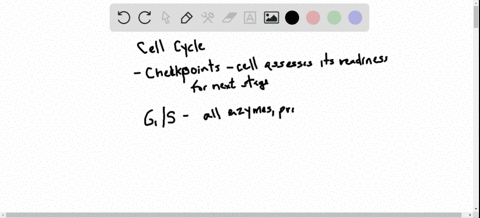 Cell Cycle
- Checkpoints - cell assesses its readiness
for next stage
G₁/S - all enzymes, pr